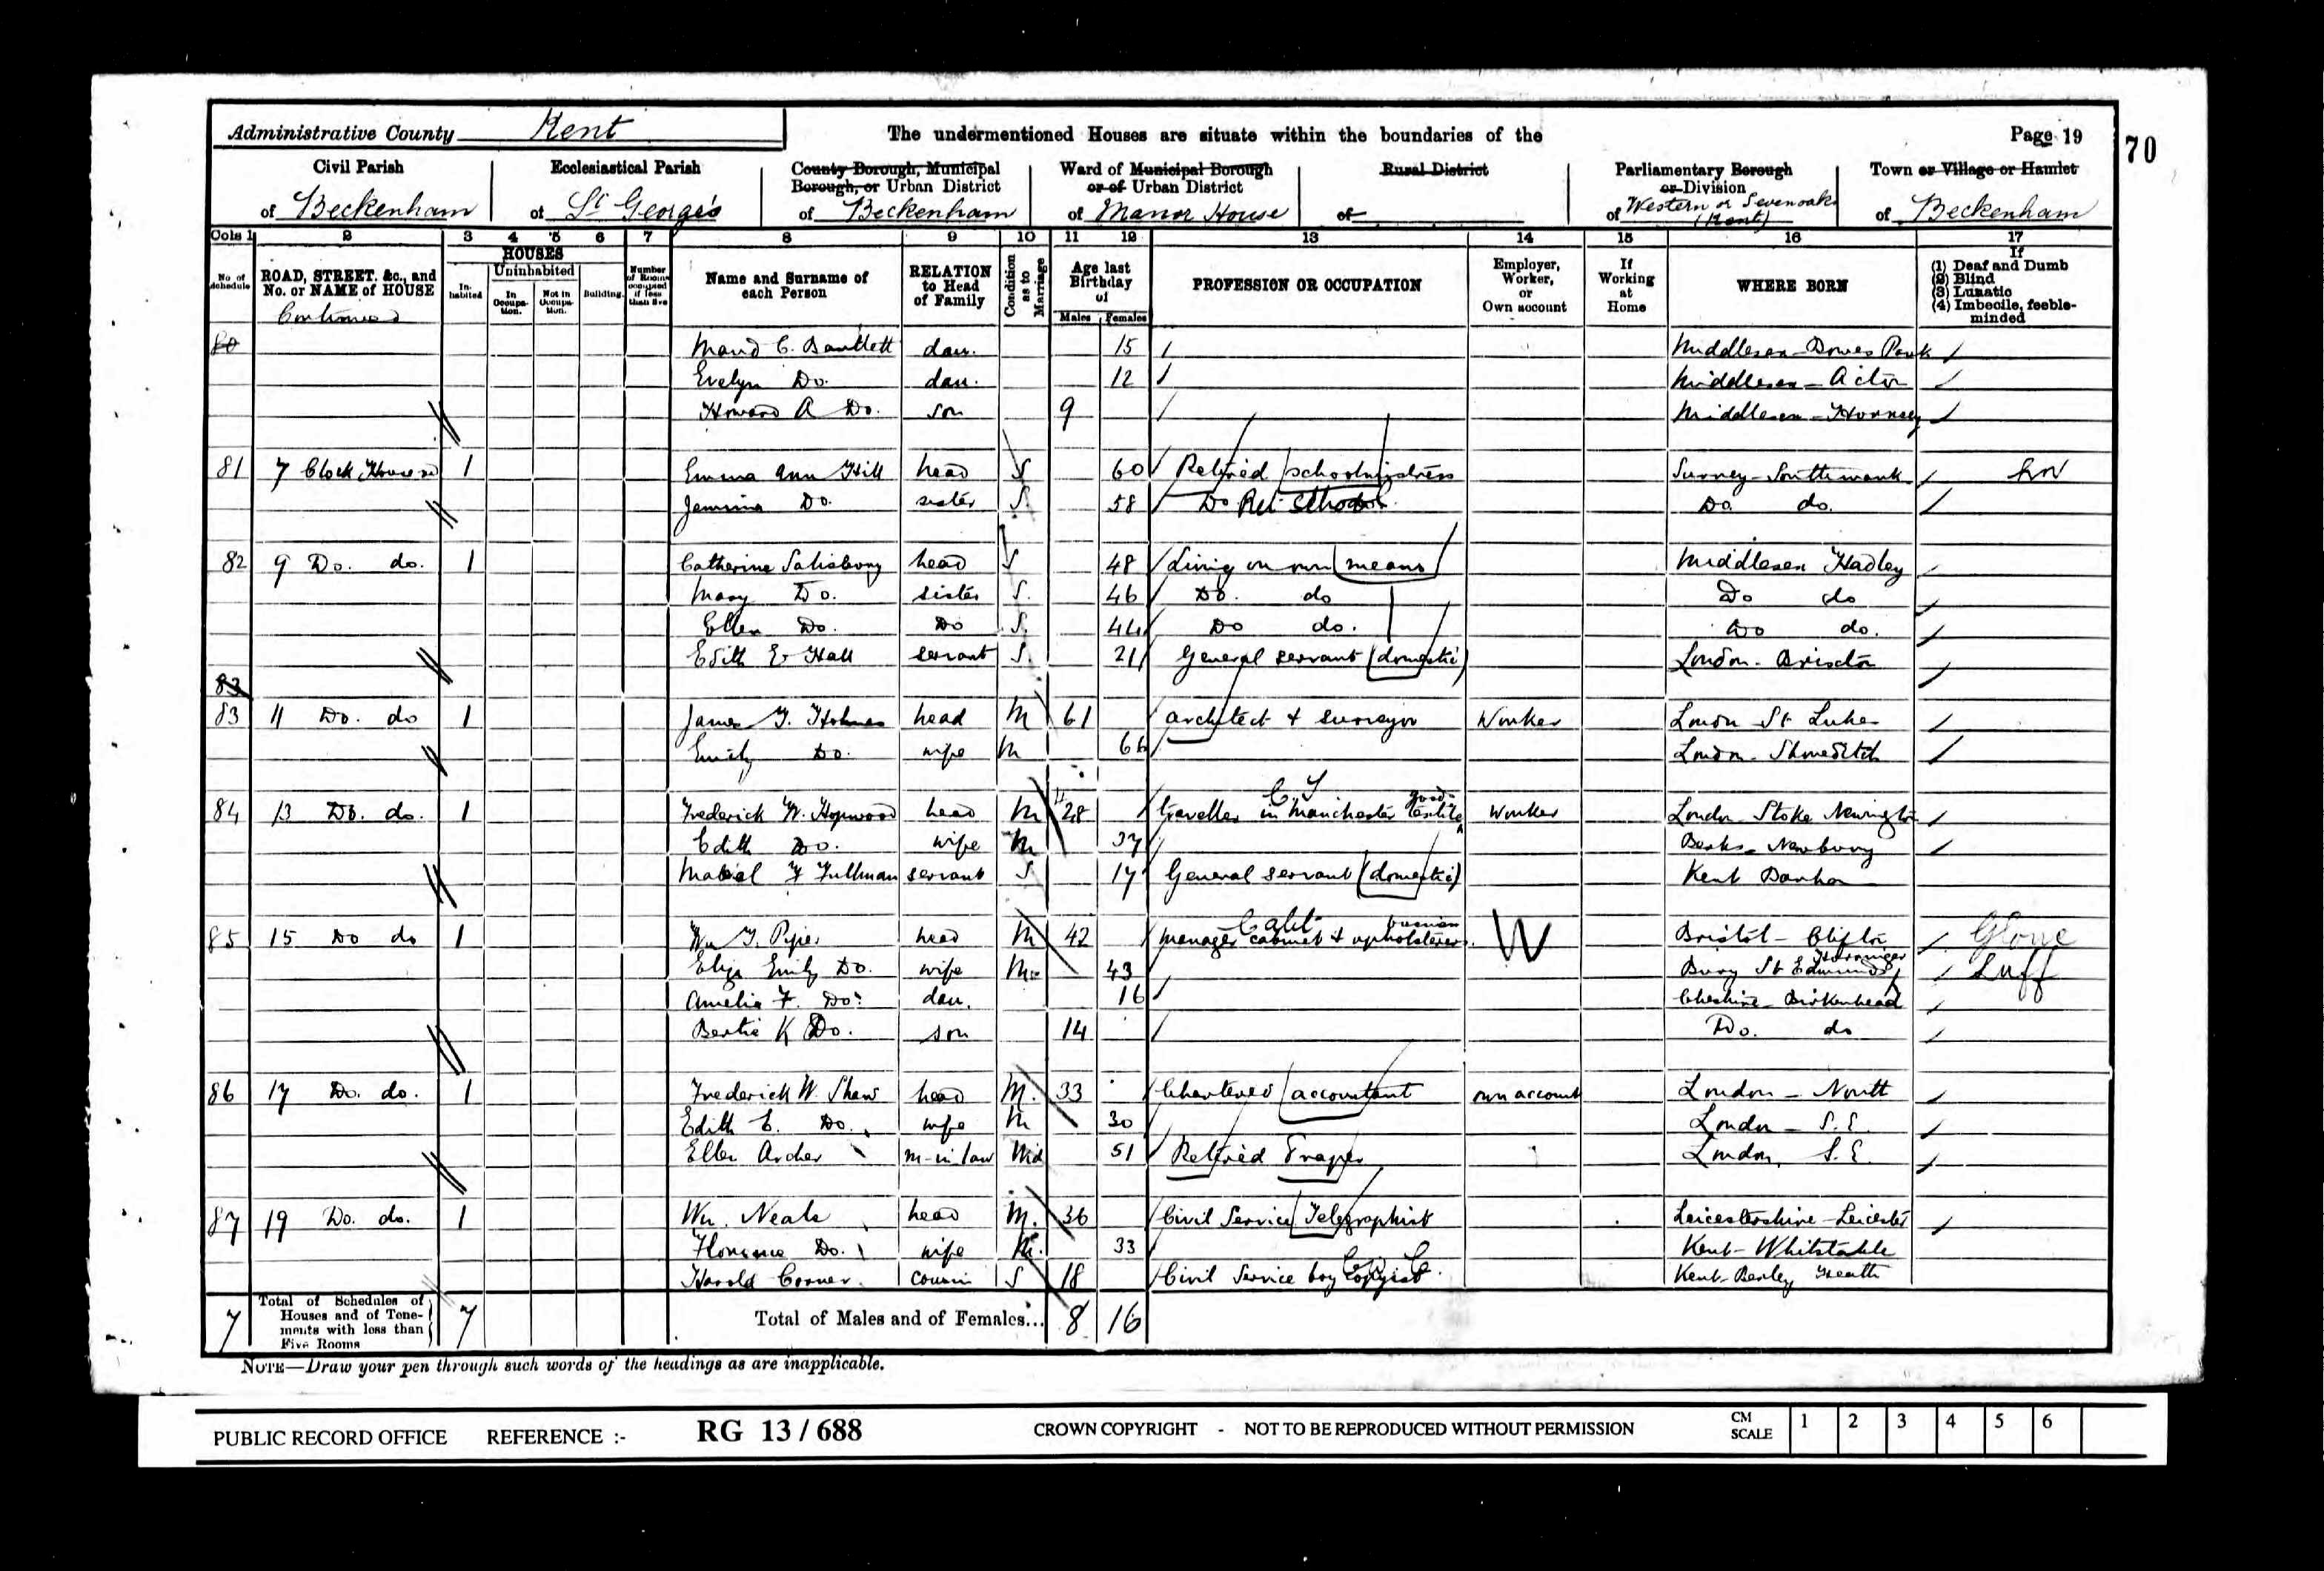 Administrative County Kent
The undermentioned Houses are situate within the boundaries of the
Page 19
70
Civil Parish of Beckenham
Ecclesiastical Parish of St George's
County Borough, Municipal Borough, or Urban District of Beckenham
Ward of Municipal Borough or of Urban District of Manor House
Rural District of
Parliamentary Borough or Division of Western or Sevenoaks (Kent)
Town or Village or Hamlet of Beckenham
Cols 1 2 3 4 5 6 7 8 9 10 11 12 13 14 15 16 17
No. of Schedule
ROAD, STREET, &c., and No. or NAME of HOUSE
Continued
HOUSES
Inhabited
Uninhabited
In Occupation.
Not in Occupation.
Building.
Number of Rooms occupied if less than five
Name and Surname of each Person
RELATION to Head of Family
Condition as to Marriage
Age last Birthday of
Males Females
PROFESSION OR OCCUPATION
Employer, Worker, or Own account
If Working at Home
WHERE BORN
If (1) Deaf and Dumb (2) Blind (3) Lunatic (4) Imbecile, feeble-minded
80 Maud C. Bartlett dau. 15 Middlesex - Park
Evelyn Do. dau. 12 Middlesex - Acton
Howard A Do. son 9 Middlesex - Hornsey
81 7 Clock House Rd 1 Emma Ann Hill head S 60 Retired schoolmistress Surrey - Southwark
Jemima Do. sister S. 58 Do Ret School. Do. do.
82 9 Do. do. 1 Catherine Salisbury head S 48 Living on own means Middlesex Hadley
Mary Do. sister S. 46 Do. do Do do
Ellen Do. Do S. 44 Do do. Do do.
Edith E Hall servant S. 21 General servant (domestic) London - Brixton
83
83 11 Do. do 1 James Y. Holmes head M 61 Architect & surveyor Worker London St Lukes
Emily Do. wife M 66 London - Shoreditch
84 13 Do. do. 1 Frederick W. Hopwood head M 28 traveller in Manchester textile goods Worker London Stoke Newington
Edith Do. wife M 37 Berks - Newbury
Mabel F Fullman servant S 17 General servant (domestic) Kent
85 15 Do do 1 Wm J. Piper head M 42 Manager cabinet & upholsterers business W Bristol - Clifton
Eliza Emily Do. wife M 43 Bury St Edmunds
Amelia F. Do. dau. 16 Cheshire - Birkenhead
Bertie K Do. son 14 Do. do
86 17 Do. do. 1 Frederick W. Shaw head M. 33 Chartered accountant own account London - North
Edith C. Do. wife M 30 London - S.E.
Ellen Archer m-in-law Wid 51 Retired Draper London. S.E.
87 19 Do. do. 1 Wm. Neale head M. 36 Civil Service Telegraphist Leicestershire - Leicester
Florence Do. wife M. 33 Kent - Whitstable
Harold Corner. cousin S 18 Civil Service boy Copyist Kent - Bexley Heath
7 Total of Schedules of Houses and of Tenements with less than Five Rooms 7 Total of Males and of Females... 8 16
NOTE—Draw your pen through such words of the headings as are inapplicable.
PUBLIC RECORD OFFICE REFERENCE :- RG 13 / 688 CROWN COPYRIGHT - NOT TO BE REPRODUCED WITHOUT PERMISSION
CM SCALE 1 2 3 4 5 6